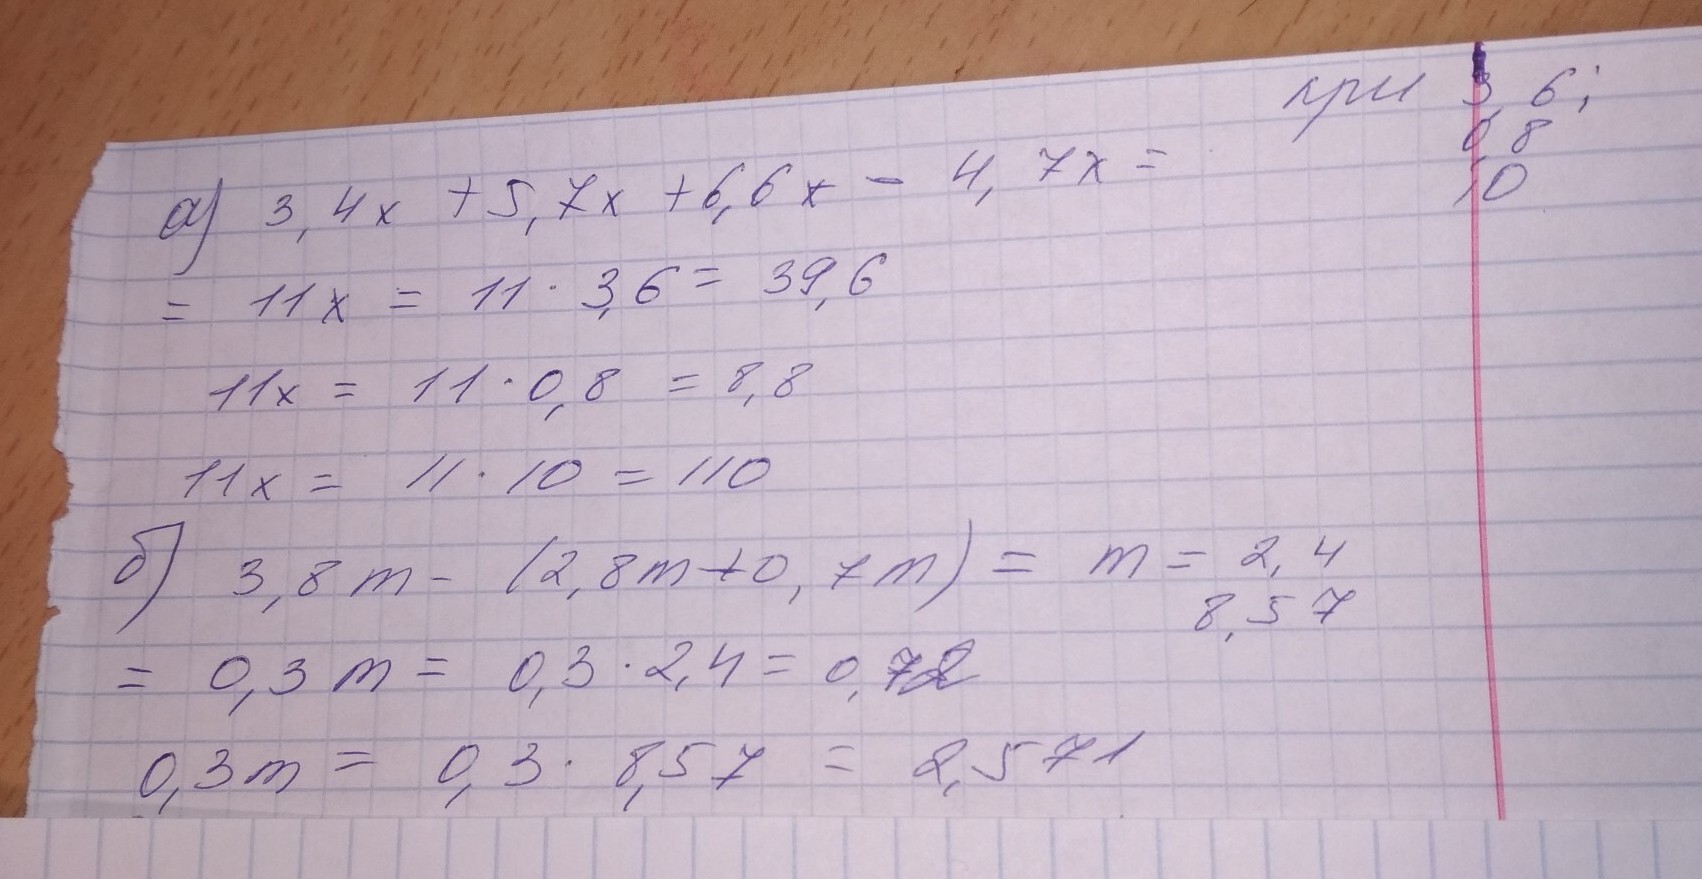 при 3,6;
0,8
10
а) 3,4x + 5,7x + 6,6x - 4,7x =
= 11x = 11 · 3,6 = 39,6
11x = 11 · 0,8 = 8,8
11x = 11 · 10 = 110
б) 3,8m - (2,8m + 0,7m) = m = 2,4
8,57
= 0,3m = 0,3 · 2,4 = 0,72
0,3m = 0,3 · 8,57 = 2,571